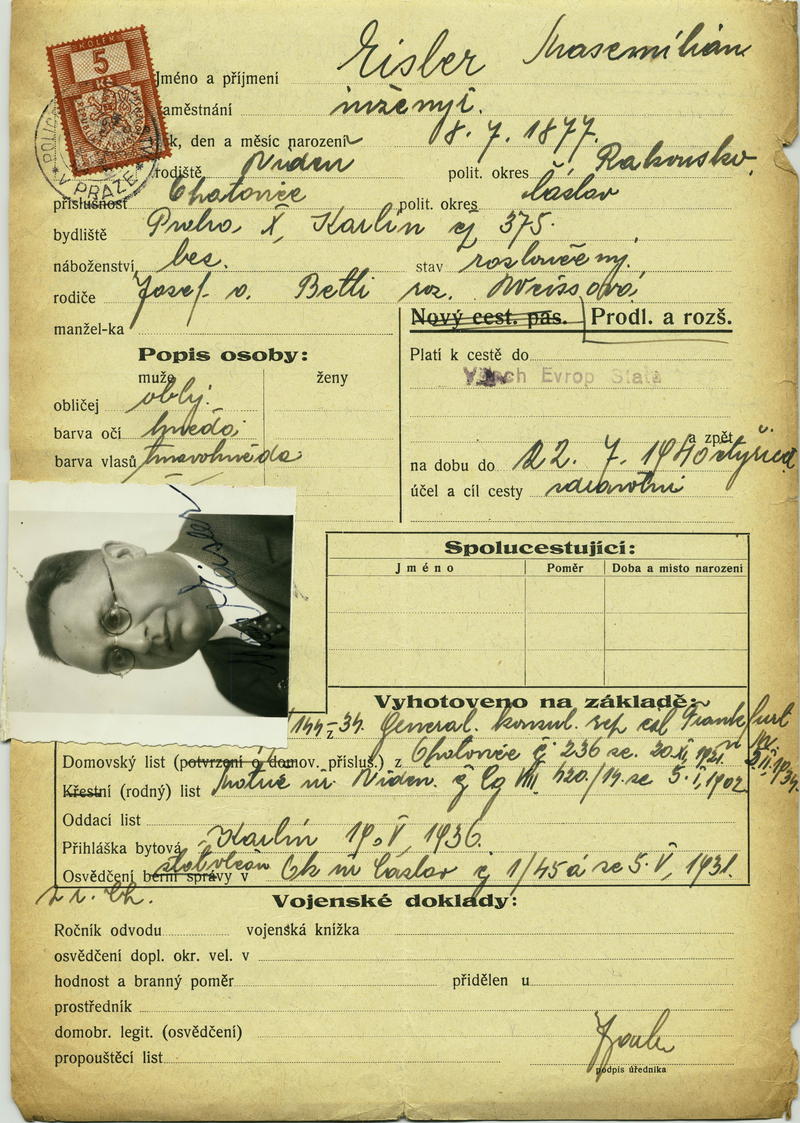 KOLEK
5
V PRAZE
Jméno a příjmení Eisler Maxemilián
zaměstnání inženýr.
k, den a měsíc narození 8. 7. 1877.
rodiště Viden polit. okres Rakousko.
příslušnost Chotovice polit. okres Čáslav
bydliště Praha X, Karlín čj 375.
náboženství bez. stav rozloučený.
rodiče Josef a. Betti roz. Weissová
manžel-ka
Nový cest. pas. Prodl. a rozš.
Popis osoby:
muže ženy
obličej oblý.
barva očí hnědá
barva vlasů tmavohnědá
Platí k cestě do
Všech Evrop Států
a zpět
na dobu do 22. 7. 1940
účel a cíl cesty zdravotní
Spolucestující:
Jméno Poměr Doba a místo narození
Vyhotoveno na základě:
144-34. General. konsul. rep čsl Frankfurt
Domovský list (potvrzení o domov. přísluš.) z Chotovice č 236 ze 20.XI. 1921
Křestní (rodný) list Viden. VIII 420/14 ze 5.I.1902
Oddací list
Přihláška bytová Karlín 19.V.1936.
Osvědčení berní správy v Čáslav čj 1/45 ze 5.V.1931.
Vojenské doklady:
Ročník odvodu vojenská knížka
osvědčení dopl. okr. vel. v
hodnost a branný poměr přidělen u
prostředník
domobr. legit. (osvědčení)
propouštěcí list
podpis úředníka